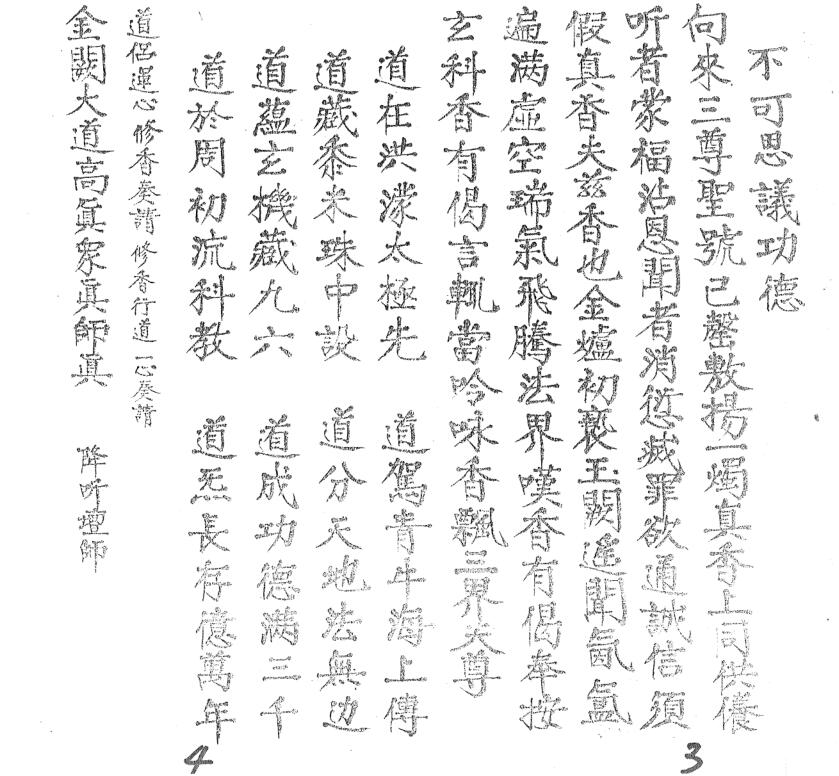 不可思議功德
向來三尊聖號已罄敷揚一燭真香上同供養
听者蒙福沾恩聞者消愆滅罪欲通誠信須
假真香夫茲香也金爐初爇玉闕遙聞氤氳
遍满虛空瑞氣飛騰法界嘆香有偈奉按
玄科香有偈言輒當吟咏香飄三界大尊
道在洪濛太極先 道駕青牛海上傳
道藏黍米珠中設 道分天地法無边
道蘊玄機藏九六 道成功德满三千
道於周初流科教 道炁長存億萬年
道侶運心修香奏請 修香行道一心奏請
金闕大道高眞眾眞師眞 降听壇師
3
4